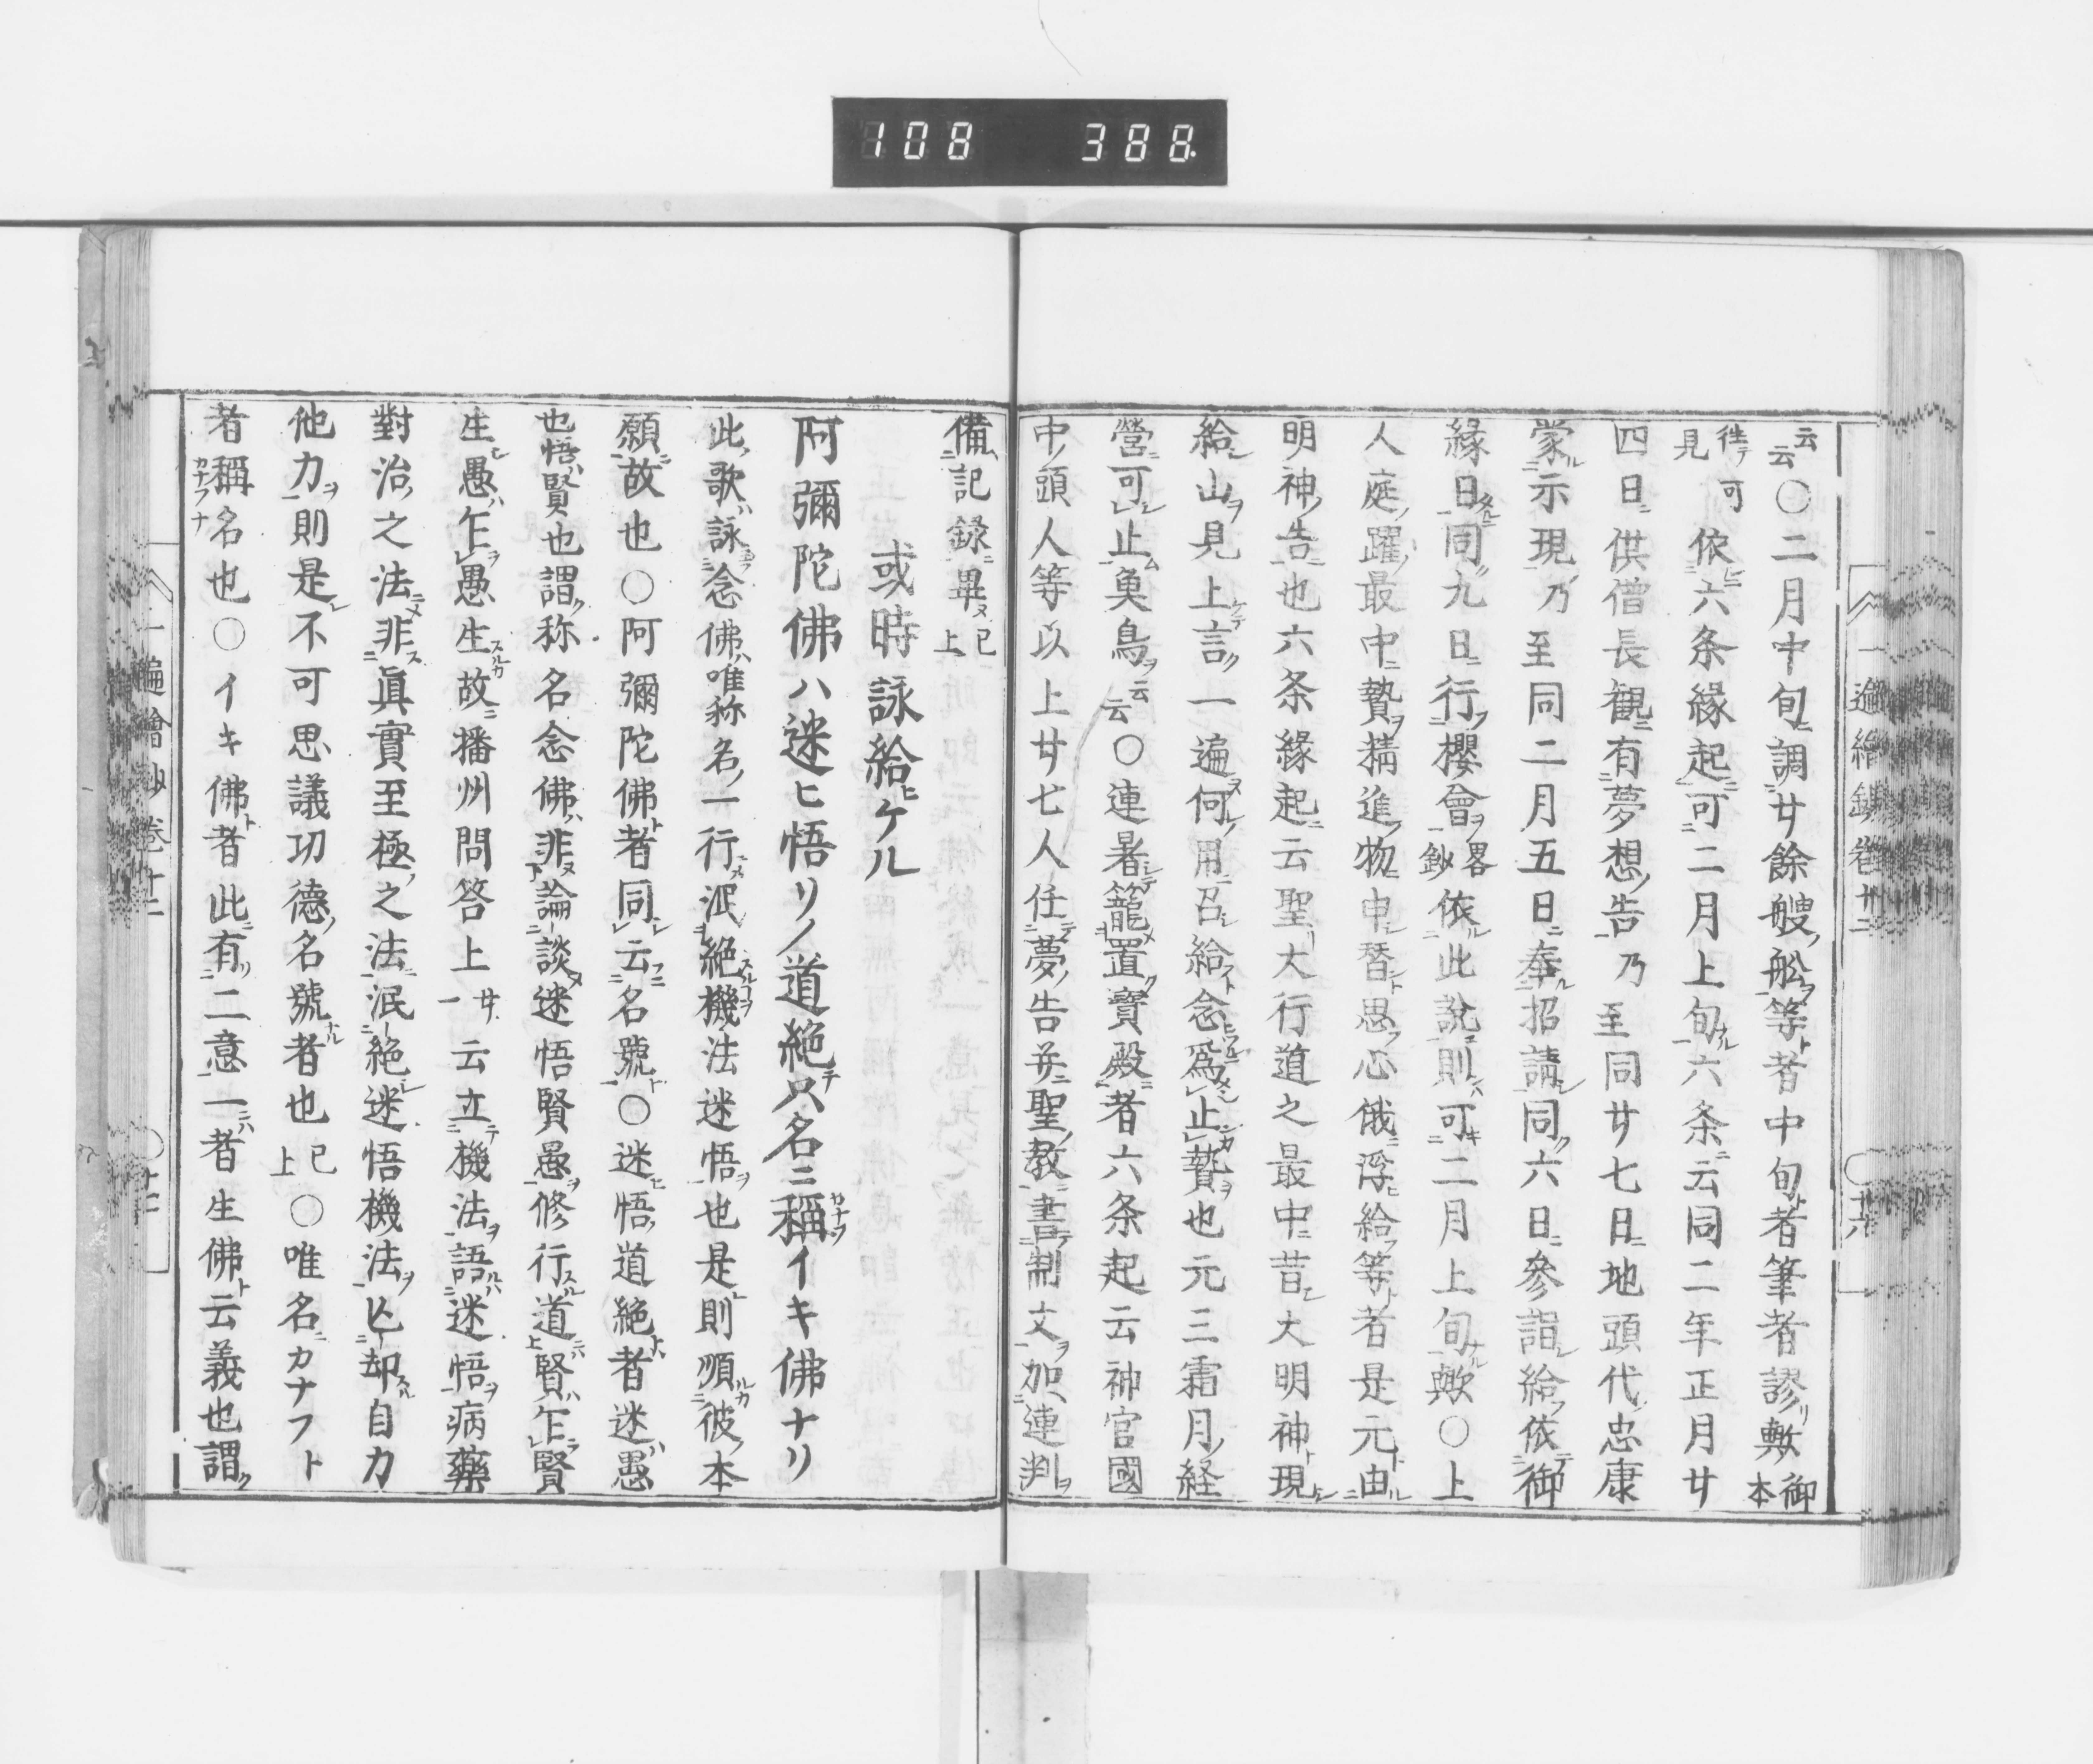 108 388
一遍繪鈔卷十二 ○十六
云云○二月中旬調廿餘艘舩等者中旬者筆者謬歟御本
徃可見 依六条緣起可二月上旬六条云同二年正月廿
四日供僧長観有夢想告乃至同廿七日地頭代忠康
蒙示現乃至同二月五日奉招請同六日參詣給依御
緣日同九日行櫻會畧鈔依此說則可二月上旬歟○上
人庭躍最中贄精進物申替思心俄浮給等者是元由
明神告也六条緣起云聖大行道之最中昔大明神現
給山見上言一遍何用召給念爲止贄也元三霜月経
營可止魚鳥云云○連暑籠置寶殿者六条起云神官國
中頭人等以上廿七人任夢告并聖教書制文加連判
備記錄畢已上
或時詠給ヒケル
阿彌陀佛ハ迷ヒ悟リノ道絶テ只名ニ稱カナヲイキ佛ナリ
此歌詠念佛唯称名一行泯絶機法迷悟也是則順彼本
願故也○阿彌陀佛者同云名號○迷悟道絶者迷愚
也悟賢也謂称名念佛非論談迷悟賢愚修行道賢乍賢
生愚乍愚生故播州問答上廿一云立機法語迷悟病藥
對治之法非眞實至極之法泯絶迷悟機法亡却自力
他力則是不可思議功德名號者也已上○唯名カナフト
者稱カナフナ名也○イキ佛者此有二意一者生佛云義也謂
一遍繪鈔卷十二